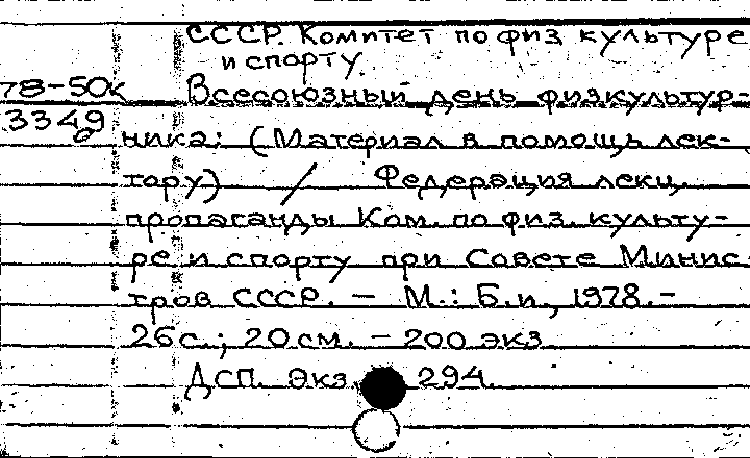 СССР. Комитет по физ культуре
и спорту.
78-50к Всесоюзный день физкультур-
3349
6 ника: (Материал в помощь лек-
тору) / Федерация лекц.
пропаганды Ком. по физ. культу-
ре и спорту при Совете Минис-
тров СССР. – М.: Б.и., 1978.-
26с.; 20см. – 200 экз
Дсп. Экз. 294.